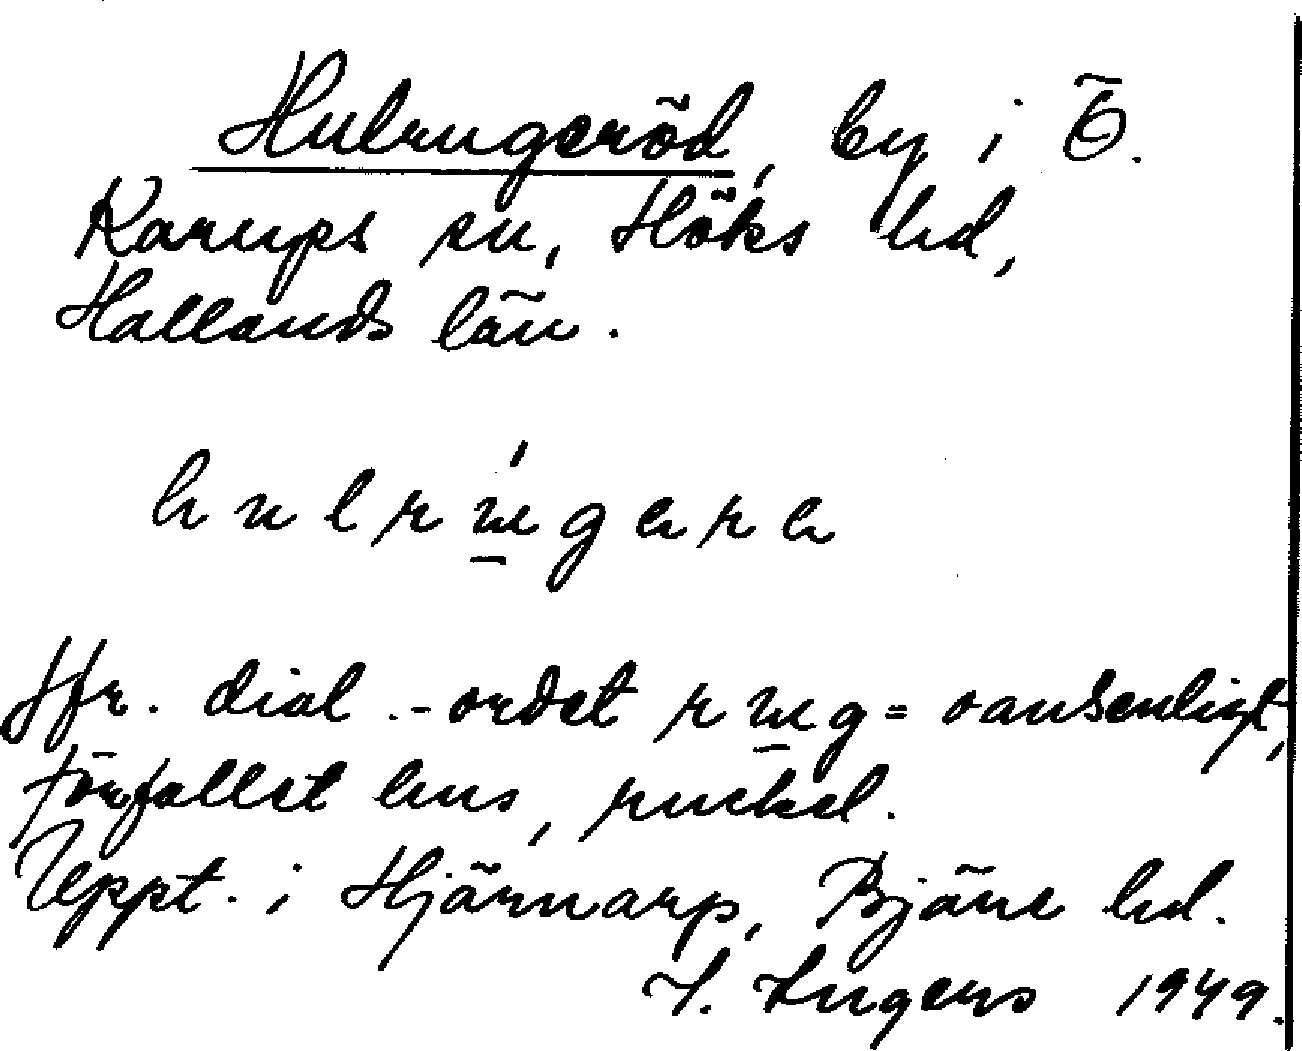 Hulrugeröd, by i Ö.
Karups sn, Höks hd,
Hallands län.
hulrúgere
Jfr. dial.-ordet rug = oansenligt,
förfallet hus, ruckel.
Uppt. i Hjärnarp, Bjäre hd.
I. Ingers 1949.